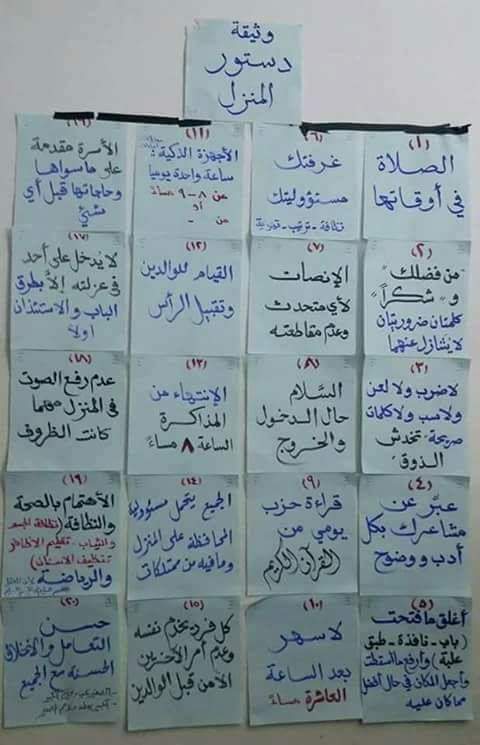 وثيقة
دستور
المنزل
(١)
الصلاة
في أوقاتها
(٢)
"من فضلك"
و "شكراً"
كلمتان ضروريتان
لا يتنازل عنهما
(٣)
لا ضرب ولا لعن
ولا سب ولا كلمات
صريحة تخدش
الذوق
(٤)
عبّر عن
مشاعرك بكل
أدب ووضوح
(٥)
أغلق ما فتحت
(باب - نافذة - طبق
علبة) وارفع ما أسقطت
واجعل المكان في حال أفضل
مما كان عليه
(٦)
غرفتك
مسئووليتك
نظافة - ترتيب - تهوية
(٧)
الإنصات
لأي متحدث
وعدم مقاطعته
(٨)
السَّلام
حال الدخول
والخروج
(٩)
قراءة حزب
يومي من
القرآن الكريم
(١٠)
لا سهر
بعد الساعة
العاشرة مساءً
(١١)
الأجهزة الذكية:
ساعة واحدة يوميا
من ٨ - ٩ مساءً
أو
من -
(١٢)
القيام للوالدين
وتقبيل الرأس
(١٣)
الإنتهاء من
المذاكرة
الساعة ٨ مساءً
(١٤)
الجميع يتحمل مسئوولية
المحافظة على المنزل
وما فيه من ممتلكات
(١٥)
كل فرد يخدم نفسه
وعدم أمر الآخرين
الأمن قبل الوالدين
(١٦)
الأسرة مقدمة
على ما سواها
وحاجاتها قبل أي
شيئ
(١٧)
لا يدخل على أحد
في عزلته إلّا بطرق
الباب والاستئذان
أولا
(١٨)
عدم رفع الصوت
في المنزل مهما
كانت الظروف
(١٩)
الأهتمام بالصحة
والنظافة (نظافة الجسم
والثياب - تقليم الأظافر
تنظيف الأسنان)
والرياضة
(٢٠)
حسن
التعامل والأخلاق
الحسنة مع الجميع